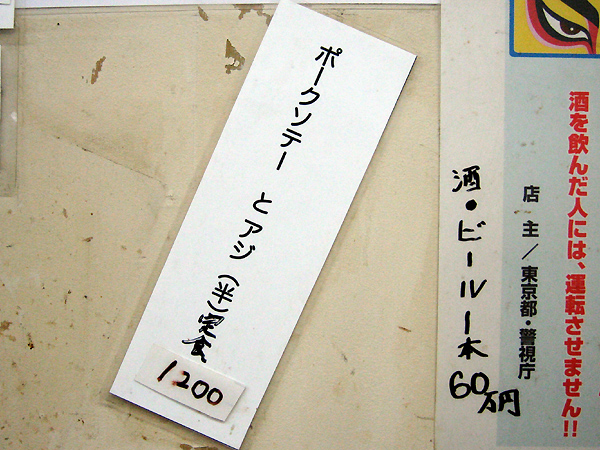 ポークソテー とアジ(半)定食
1200
酒・ビール1本
60万円
酒を飲んだ人には、運転させません!!
店主/東京都・警視庁